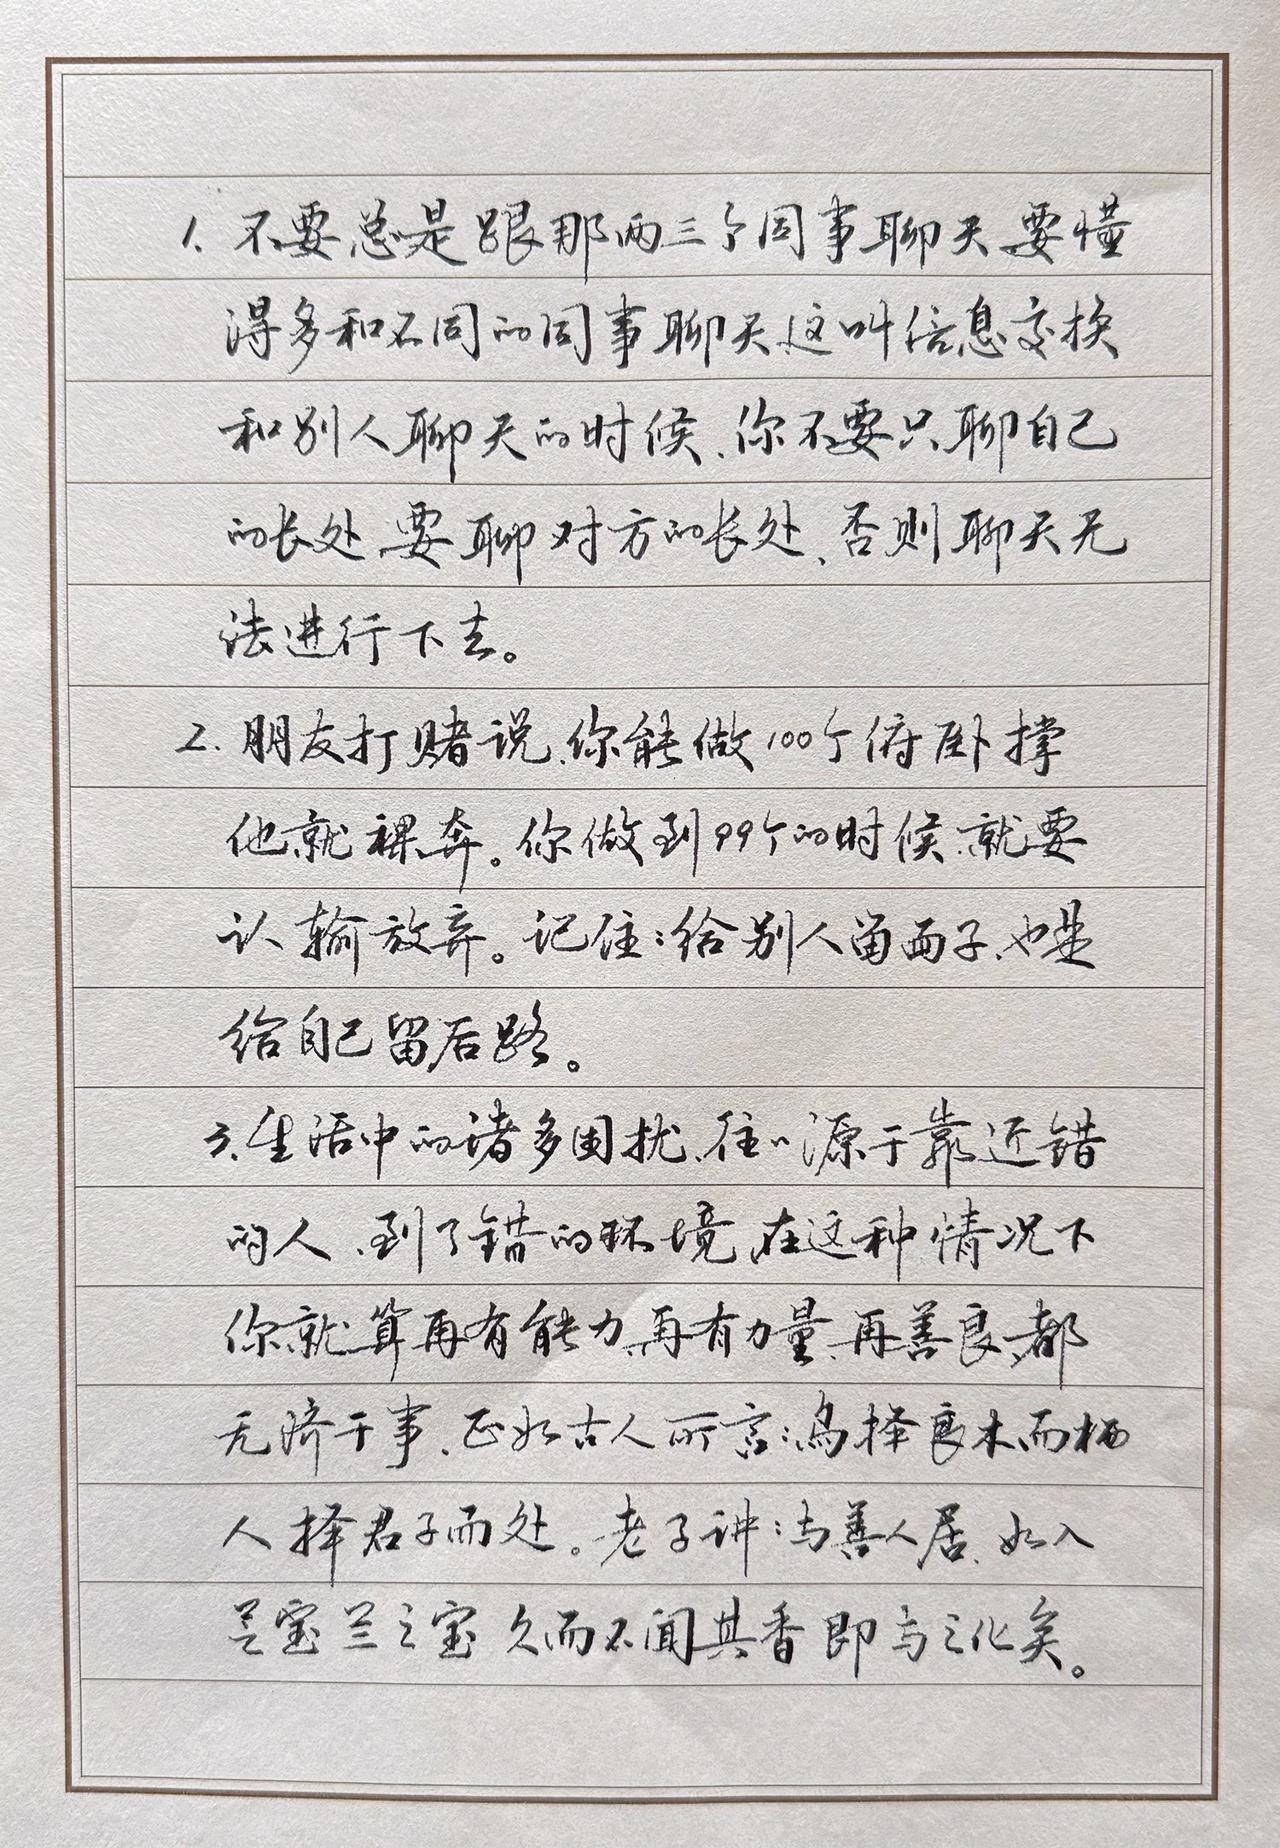 1、不要总是跟那两三个同事聊天要懂
得多和不同的同事聊天这叫信息交换
和别人聊天的时候、你不要只聊自己
的长处、要聊对方的长处、否则聊天无
法进行下去。
2、朋友打赌说、你能做100个俯卧撑
他就裸奔。你做到99个的时候、就要
认输放弃。记住：给别人留面子、也是
给自己留后路。
3、生活中的诸多困扰、往〃源于靠近错
的人、到了错的环境、在这种情况下
你就算再有能力、再有力量、再善良、都
无济于事、正如古人所言：鸟择良木而栖
人择君子而处。老子讲：与善人居、如入
兰之室 久而不闻其香 即与之化矣。